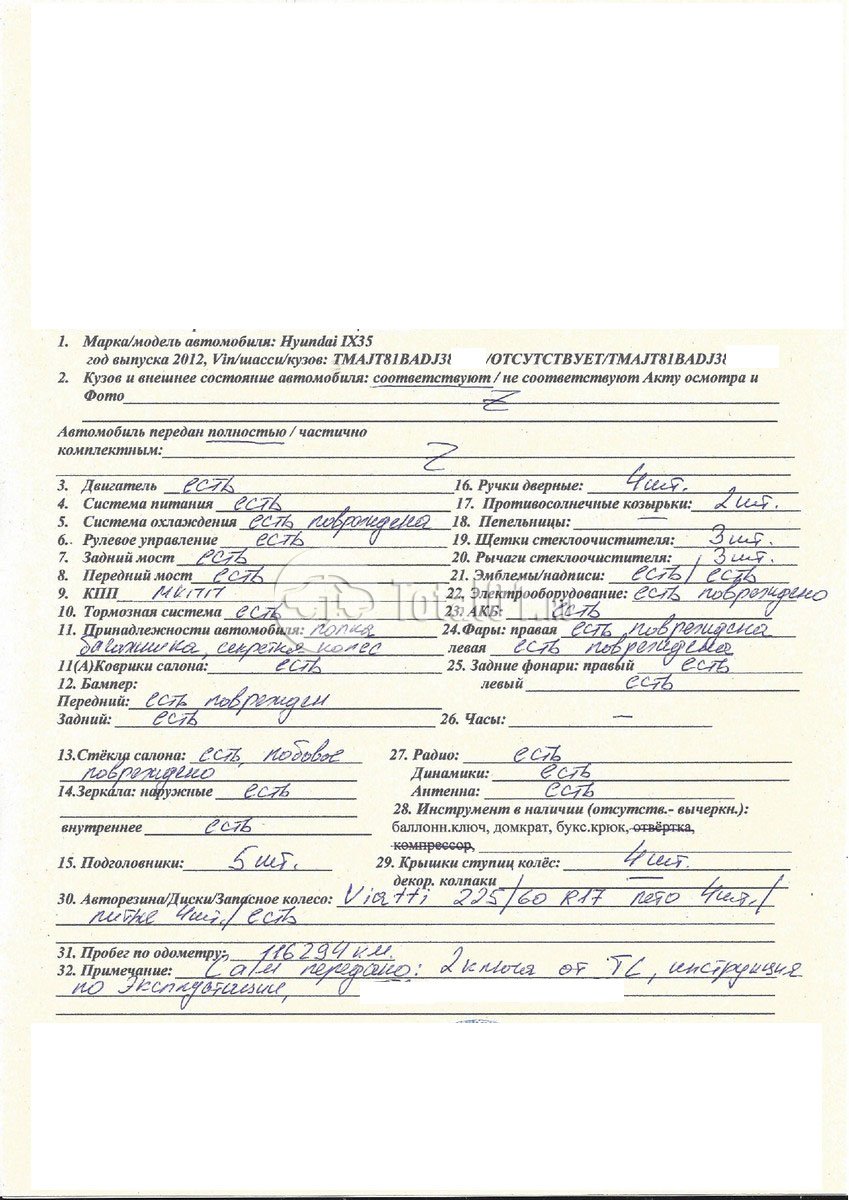 1. Марка/модель автомобиля: Hyundai IX35
год выпуска 2012, Vin/шасси/кузов: TMAJT81BADJ38 /ОТСУТСТВУЕТ/TMAJT81BADJ38
2. Кузов и внешнее состояние автомобиля: соответствуют / не соответствуют Акту осмотра и
Фото
Автомобиль передан полностью / частично
комплектным:
3. Двигатель есть
4. Система питания есть
5. Система охлаждения есть повреждена
6. Рулевое управление есть
7. Задний мост есть
8. Передний мост есть
9. КПП МКПП
10. Тормозная система есть
11. Принадлежности автомобиля: полка
багажника, секретка колес
11(А)Коврики салона: есть
12. Бампер:
Передний: есть поврежден
Задний: есть
16. Ручки дверные: 4 шт.
17. Противосолнечные козырьки: 2 шт.
18. Пепельницы: —
19. Щетки стеклоочистителя: 3 шт.
20. Рычаги стеклоочистителя: 3 шт.
21. Эмблемы/надписи: есть/есть
22. Электрооборудование: есть повреждено
23. АКБ: есть
24.Фары: правая есть повреждена
левая есть повреждена
25. Задние фонари: правый есть
левый есть
26. Часы: —
13.Стёкла салона: есть, лобовое
повреждено
14.Зеркала: наружные есть
внутреннее есть
15. Подголовники: 5 шт.
27. Радио: есть
Динамики: есть
Антенна: есть
28. Инструмент в наличии (отсутств.- вычеркн.):
баллонн.ключ, домкрат, букс.крюк, отвёртка,
компрессор,
29. Крышки ступиц колёс: 4 шт.
декор. колпаки —
30. Авторезина/Диски/Запасное колесо: Viatti 225/60 R17 лето 4шт./
литые 4шт./ есть
31. Пробег по одометру: 116294 км.
32. Примечание: передано: 2 ключа от ТС, инструкция
по эксплуатации,
Total01.ru